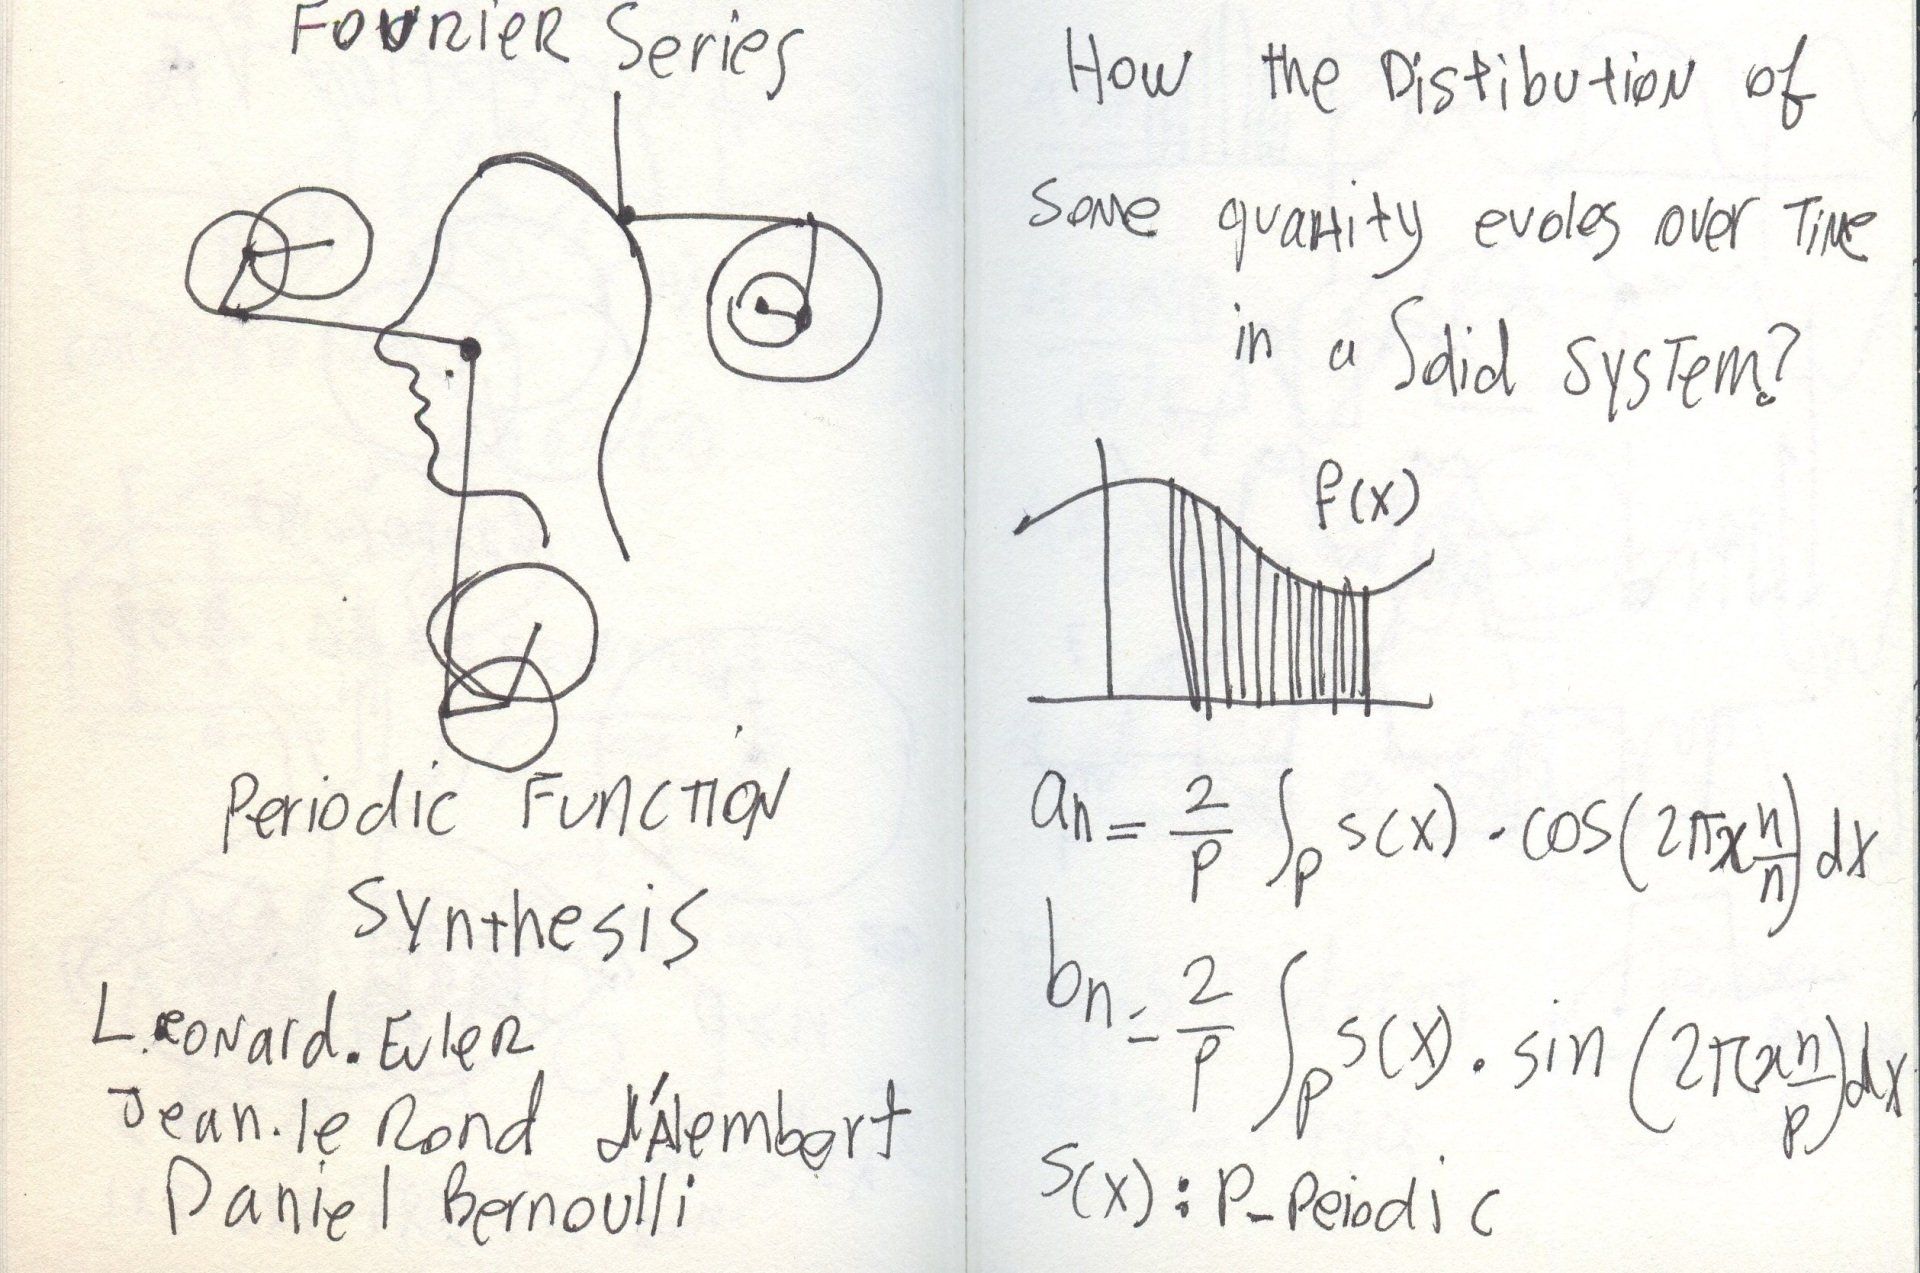 Fourier Series
Periodic Function
Synthesis
L.eonard.Euler
Jean.le Rond d'Alembert
Daniel Bernoulli
How the Distibution of
some quantity evoles over Time
in a Solid System?
f(x)
an = 2/p ∫p s(x) · cos(2πx n/n) dx
bn = 2/p ∫p s(x) · sin(2πx n/p) dx
s(x) : P-Peiodic